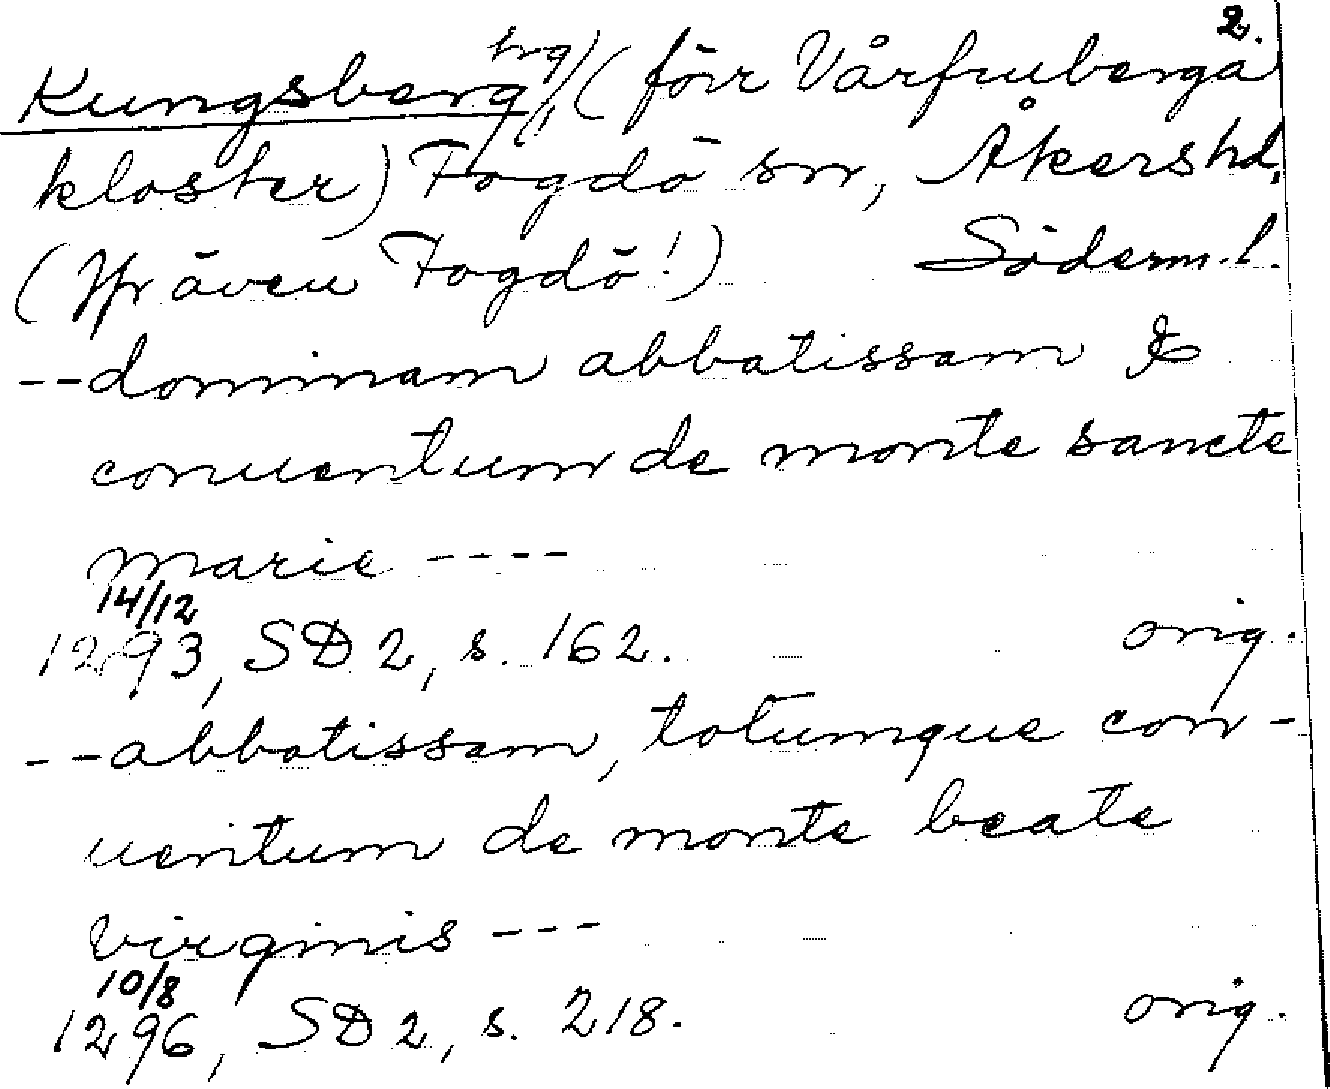 2.
Kungsberg, hrg (förr Vårfruberga
kloster) Fogdö sn, Åkers hd,
(Jfr även Fogdö!) Söderm. l.
--dominam abbatissam &
conuentum de monte sancte
marie ----
14/12
1293, SD 2, s. 162. orig.
--abbatissam, totumque con-
uentum de monte beate
virginis ---
10/8
1296, SD 2, s. 218. orig.